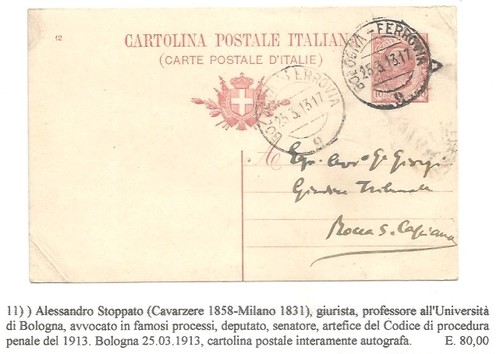 12
CARTOLINA POSTALE ITALIANA
(CARTE POSTALE D'ITALIE)
BOLOGNA-FERROVIA
25.3.13.17
BOLOGNA-FERROVIA
25.3.13.17
10
A
Giorgi
Giudice Tribunale
Rocca S. Casciano
11) ) Alessandro Stoppato (Cavarzere 1858-Milano 1831), giurista, professore all'Università
di Bologna, avvocato in famosi processi, deputato, senatore, artefice del Codice di procedura
penale del 1913. Bologna 25.03.1913, cartolina postale interamente autografa. E. 80,00